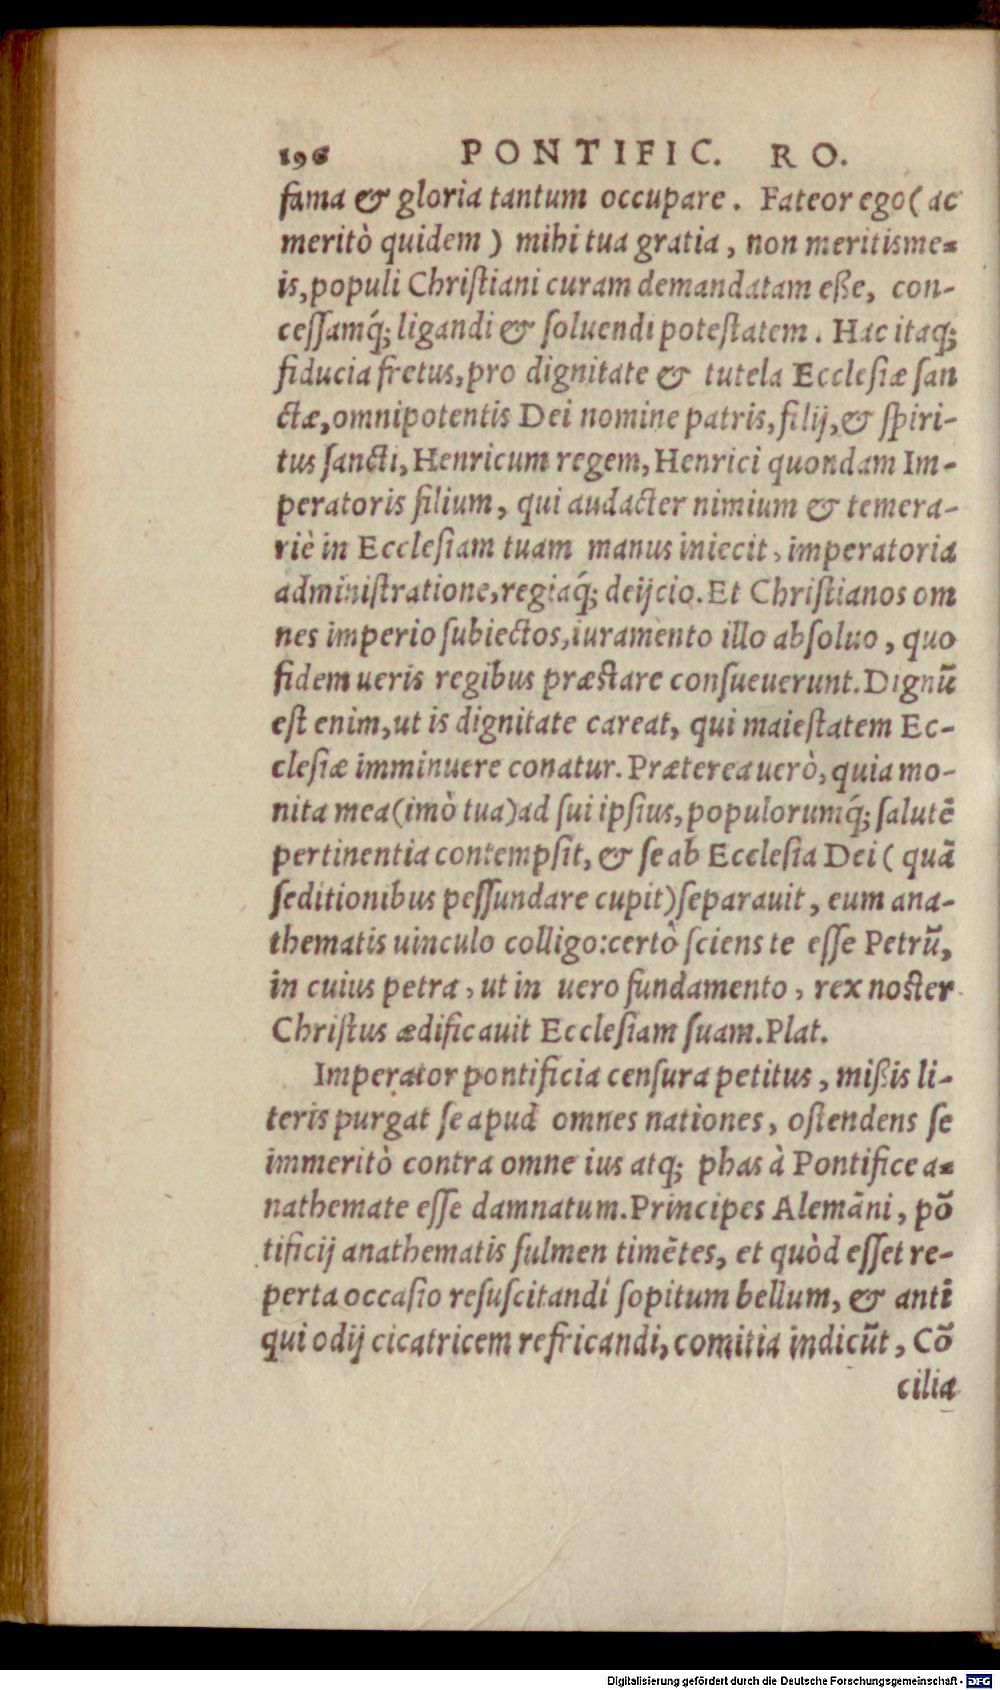 196 PONTIFIC. RO.
fama & gloria tantum occupare. Fateor ego (ac
meritò quidem) mihi tua gratia, non meritis me=
is, populi Chriſtiani curam demandatam eße, con-
ceſſamq́; ligandi & ſoluendi poteſtatem. Hac itaq;
fiducia fretus, pro dignitate & tutela Eccleſiæ ſan
ctæ, omnipotentis Dei nomine patris, filij, & ſpiri-
tus ſancti, Henricum regem, Henrici quondam Im-
peratoris filium, qui audacter nimium & temera-
riè in Eccleſiam tuam manus iniecit, imperatoria
adminiſtratione, regiaq́; deijcio. Et Chriſtianos om
nes imperio ſubiectos, iuramento illo abſoluo, quo
fidem ueris regibus præſtare conſueuerunt. Dignũ
est enim, ut is dignitate careat, qui maieſtatem Ec-
cleſiæ imminuere conatur. Præterea uerò, quia mo-
nita mea (imò tua) ad ſui ipſius, populorumq́; ſalutẽ
pertinentia contempſit, & ſe ab Eccleſia Dei (quã
ſeditionibus peſſundare cupit) ſeparauit, eum ana-
thematis uinculo colligo: certò ſciens te eſſe Petrũ,
in cuius petra, ut in uero fundamento, rex noſter
Chriſtus ædificauit Eccleſiam ſuam. Plat.
Imperator pontificia cenſura petitus, mißis li-
teris purgat ſe apud omnes nationes, oſtendens ſe
immeritò contra omne ius atq; phas à Pontifice a=
nathemate eſſe damnatum. Principes Alemãni, põ
tificij anathematis fulmen timẽtes, et quòd eſſet re-
perta occaſio reſuſcitandi ſopitum bellum, & anti
qui odij cicatricem refricandi, comitia indicũt, Cõ
cilia
Digitalisierung gefördert durch die Deutsche Forschungsgemeinschaft - DFG